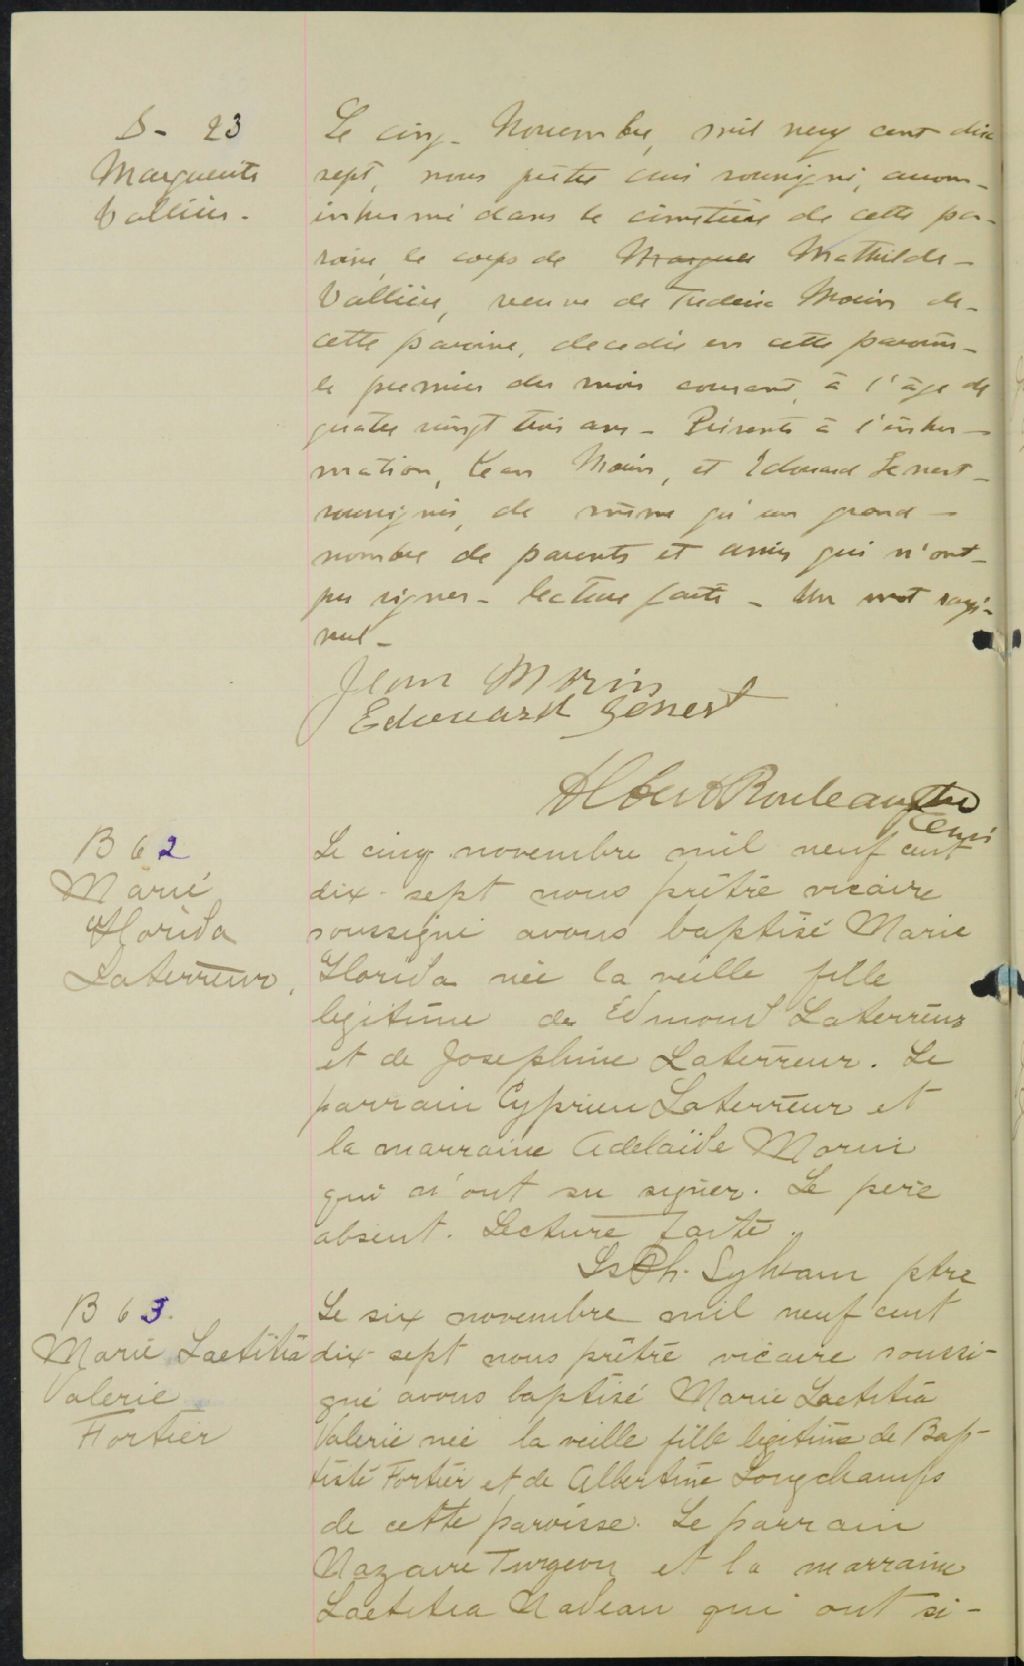 S - 23
Marguerite
Vallière -
Le cinq - Novembre, mil neuf cent dix
sept, nous prêtre curé soussigné, avons -
inhumé dans le cimetière de cette pa-
roisse, le corps de Mathilde -
Vallière, veuve de Frederic Morin de -
cette paroisse, decedée en cette paroisse -
le premier du mois courant, à l'âge de
quatre vingt trois ans - Présents à l'inhu -
mation, Jean Morin, et Edouard Genest -
soussignés, de même qu'un grand -
nombre de parents et amis qui n'ont -
pu signer - lecture faite - Un mot rayé -
nul -
Jean Morin
Edouard Genest
Albert Rouleau Ptre
Curé
B 62
Marie
Florida
Laterreur,
Le cinq novembre mil neuf cent
dix-sept nous prêtre vicaire
soussigné avons baptisé Marie
Florida née la veille fille
legitime de Edmond Laterreur
et de Josephine Laterreur. Le
parrain Cyprien Laterreur et
la marraine Adelaïde Morin
qui n'ont su signer. Le père
absent. Lecture faite.
Ls Ph. Sylvain ptre
B 63.
Marie Laetitia
Valerie
Fortier
Le six novembre mil neuf cent
dix-sept nous prêtre vicaire soussi-
gné avons baptisé Marie Laetitia
Valerie née la veille fille legitime de Bap-
tiste Fortier et de Albertine Longchamps
de cette paroisse. Le parrain
Nazaire Turgeon et la marraine
Laetitia Nadeau qui ont si -